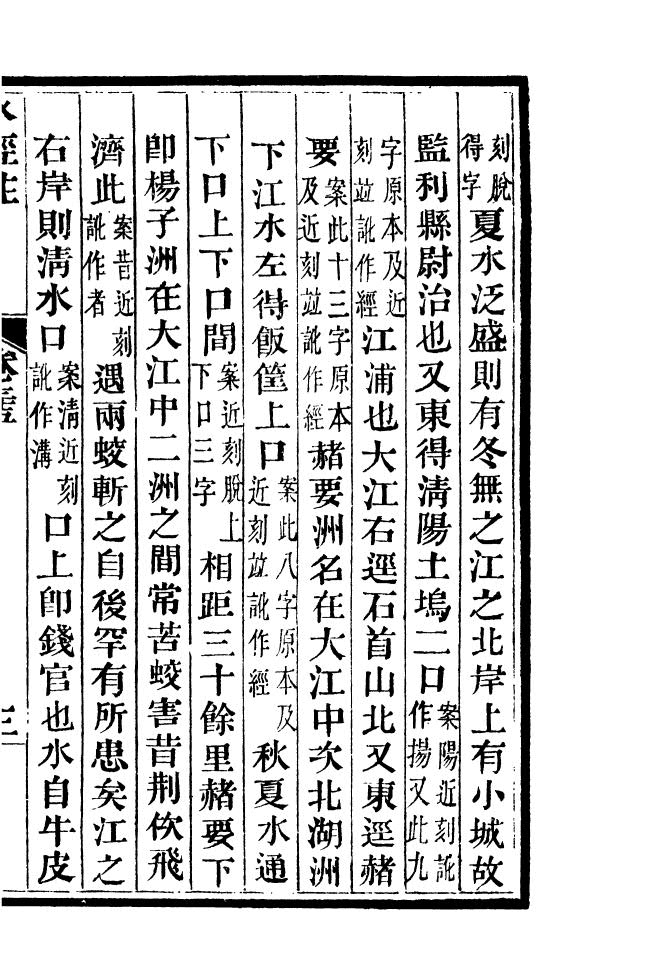 刻脫得字夏水泛盛則有冬無之江之北岸上有小城故
監利縣尉治也又東得清陽土塢二口案陽近刻訛作揚又此九
字原本及近刻竝訛作經江浦也大江右逕石首山北又東逕赭
要案此十三字原本及近刻竝訛作經赭要洲名在大江中次北湖洲
下江水左得飯筐上口案此八字原本及近刻竝訛作經秋夏水通
下口上下口間案近刻脫上下口三字相距三十餘里赭要下
即楊子洲在大江中二洲之間常苦蛟害昔荆佽飛
濟此案昔近刻訛作者遇兩蛟斬之自後罕有所患矣江之
右岸則清水口案清近刻訛作溝口上即錢官也水自牛皮
水經注 卷三十五 三